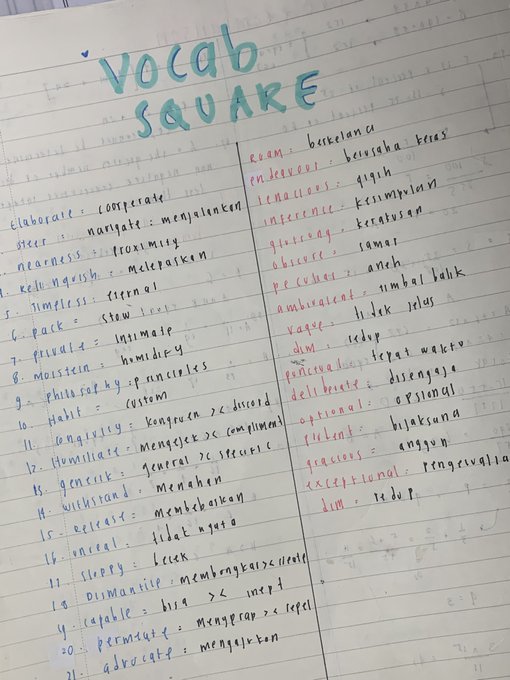 VOCAB
SQUARE
Elaborate = coorperate
steer = narigate = menjalankan
nearness = proximity
4. Relinquish = melepaskan
5. Timeless = eternal
6. pack = stow
7. private = intimate
8. moisten = humidify
9. philosophy = principles
10. Habit = custom
11. congivity = kongruen >< discord
12. Humiliate = mengejek >< compliment
13. generik = general >< specific
14. withstand = Menahan
15. Release = membebaskan
16. unreal = tidak nyata
17. sloppy = becek
18. Dismantile = membongkar ><
19. capable = bisa >< inept
20. permeate = mengerap >< repel
21. advocate = mengajarkan
ROAM = berkelana
endeavour = berusaha keras
Tenacious = gigih
inference = kesimpulan
= keratusan
obscure = samar
peculiar = aneh
ambivalent = timbal balik
vague = tidak jelas
dim = redup
punctual = tepat waktu
deliberate = disengaja
optional = opsional
= bijaksana
gracious = anggun
exceptional =
dim = redup